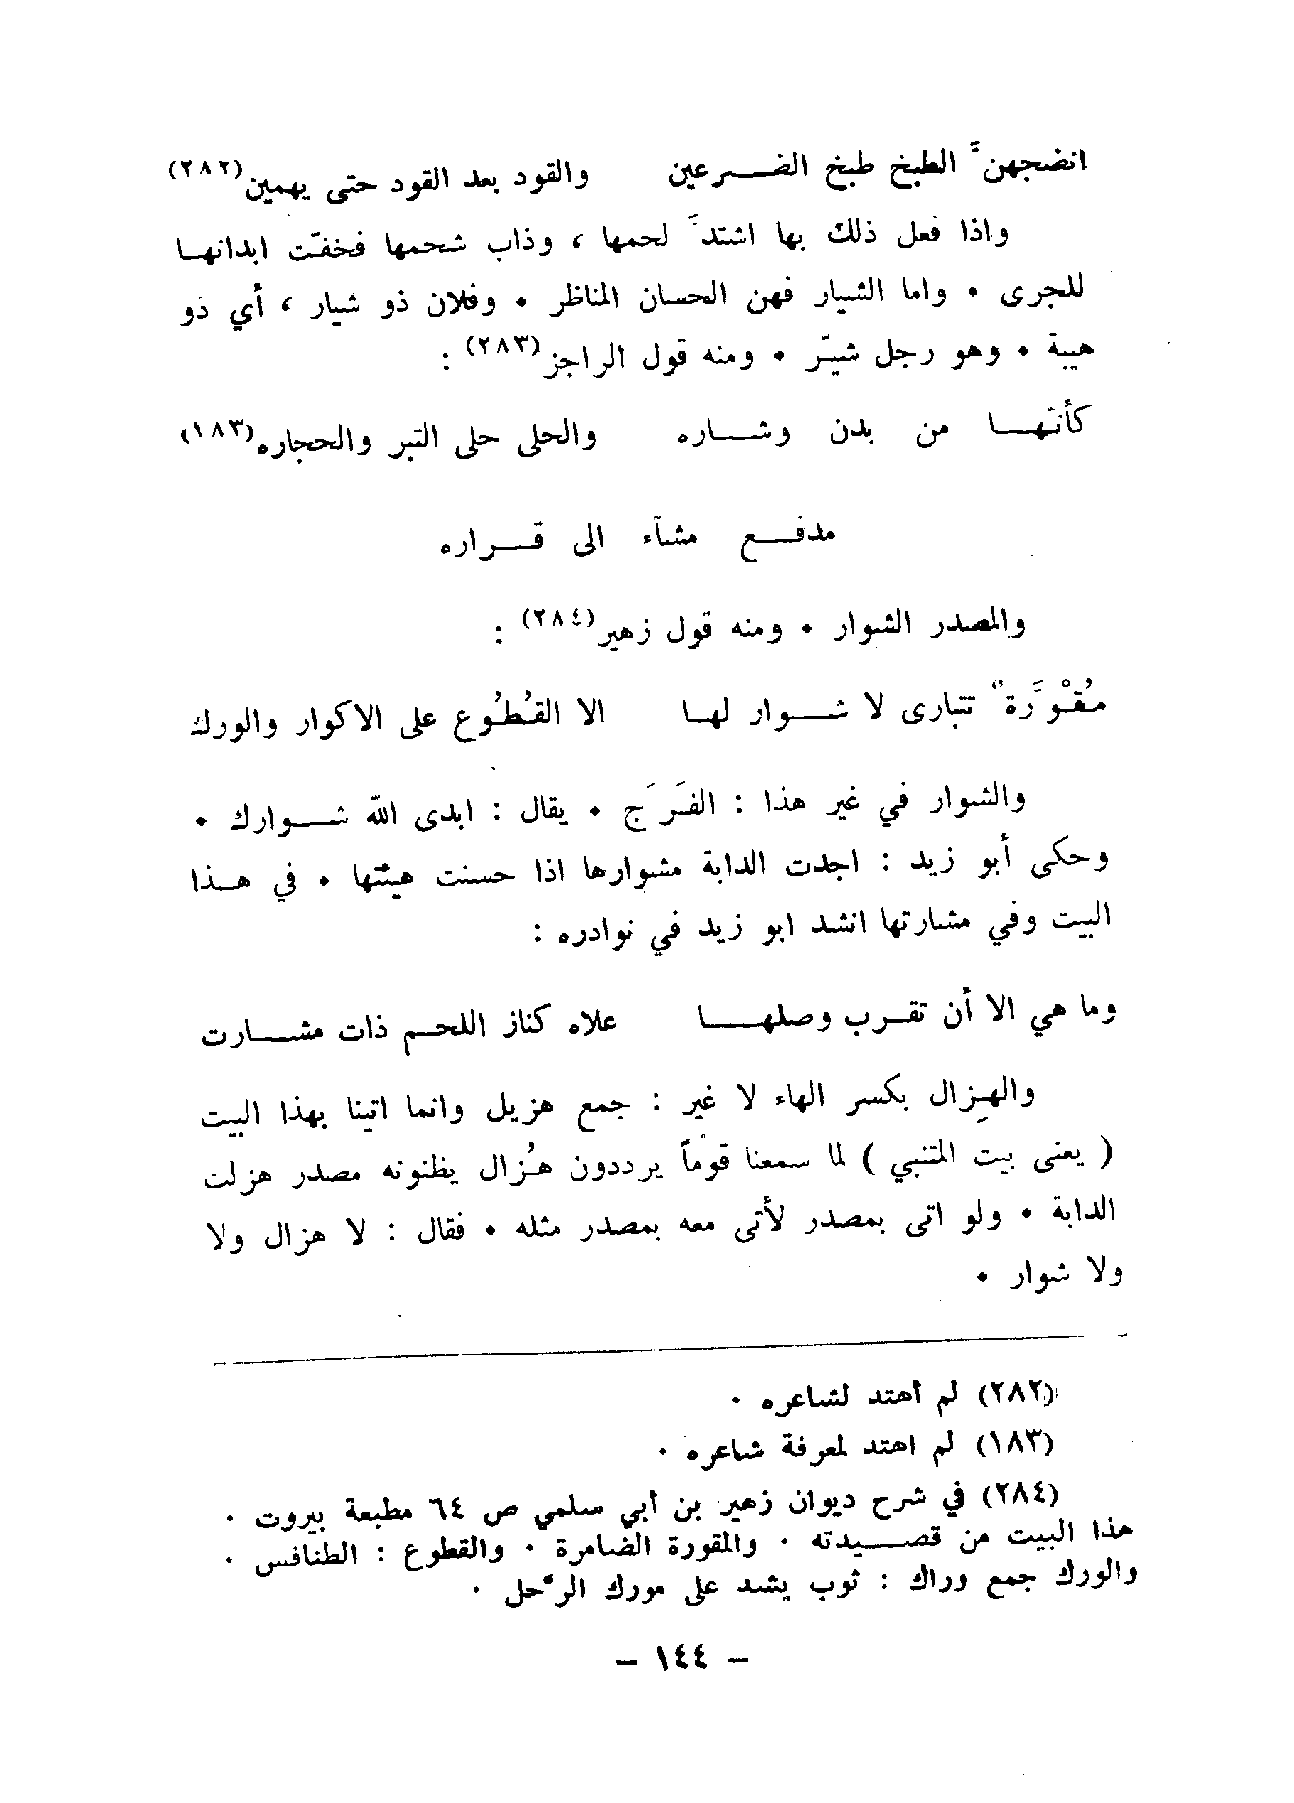 انضجهنَّ الطبخ طبخ الضـــرعين والقود بعد القود حتى يهمين(٢٨٢)
واذا فعل ذلك بها اشتدَّ لحمها ، وذاب شحمها فخفّت ابدانهـا
للجرى • واما الشيار فهن الحسان المناظر • وفلان ذو شيار ، أي ذو
هيبة • وهو رجل شيّر • ومنه قول الراجز(٢٨٣) :
كأنّهـــا من بدن وشـــاره والحلى حلى التبر والحجاره(١٨٣)
مدفـــع مشآء الى قـــراره
والمصدر الشوار • ومنه قول زهير(٢٨٤) :
مُقْوَرَّةٌ تتبارى لا شـــوار لهـا الا القُطُوع على الاكوار والورك
والشوار في غير هذا : الفَرَج • يقال : ابدى اللّه شـــوارك •
وحكى أبو زيد : اجدت الدابة مشوارها اذا حسنت هيئتها • في هـذا
البيت وفي مشارتها انشد ابو زيد في نوادره :
وما هي الا أن تقـرب وصلهـــا علاه كناز اللحـم ذات مشـــارت
والهِزال بكسر الهاء لا غير : جمع هزيل وانما اتينا بهذا البيت
( يعنى بيت المتنبي ) لما سمعنا قوماً يرددون هُزال يظنونه مصدر هزلت
الدابة • ولو اتى بمصدر لأتى معه بمصدر مثله • فقال : لا هزال ولا
ولا شوار •
(٢٨٢) لم أهتد لشاعره •
(١٨٣) لم اهتد لمعرفة شاعره •
(٢٨٤) في شرح ديوان زهير بن أبي سلمي ص ٦٤ مطبعة بيروت •
هذا البيت من قصـــيدته • والمقورة الضامرة • والقطوع : الطنافس •
والورك جمع وراك : ثوب يشد على مورك الرَّحل •
– ١٤٤ –